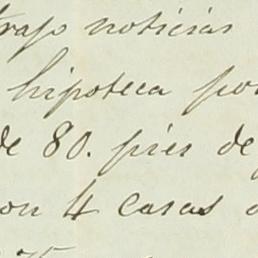 trajo noticias
hipoteca por
de 80. pies de
con 4 casas